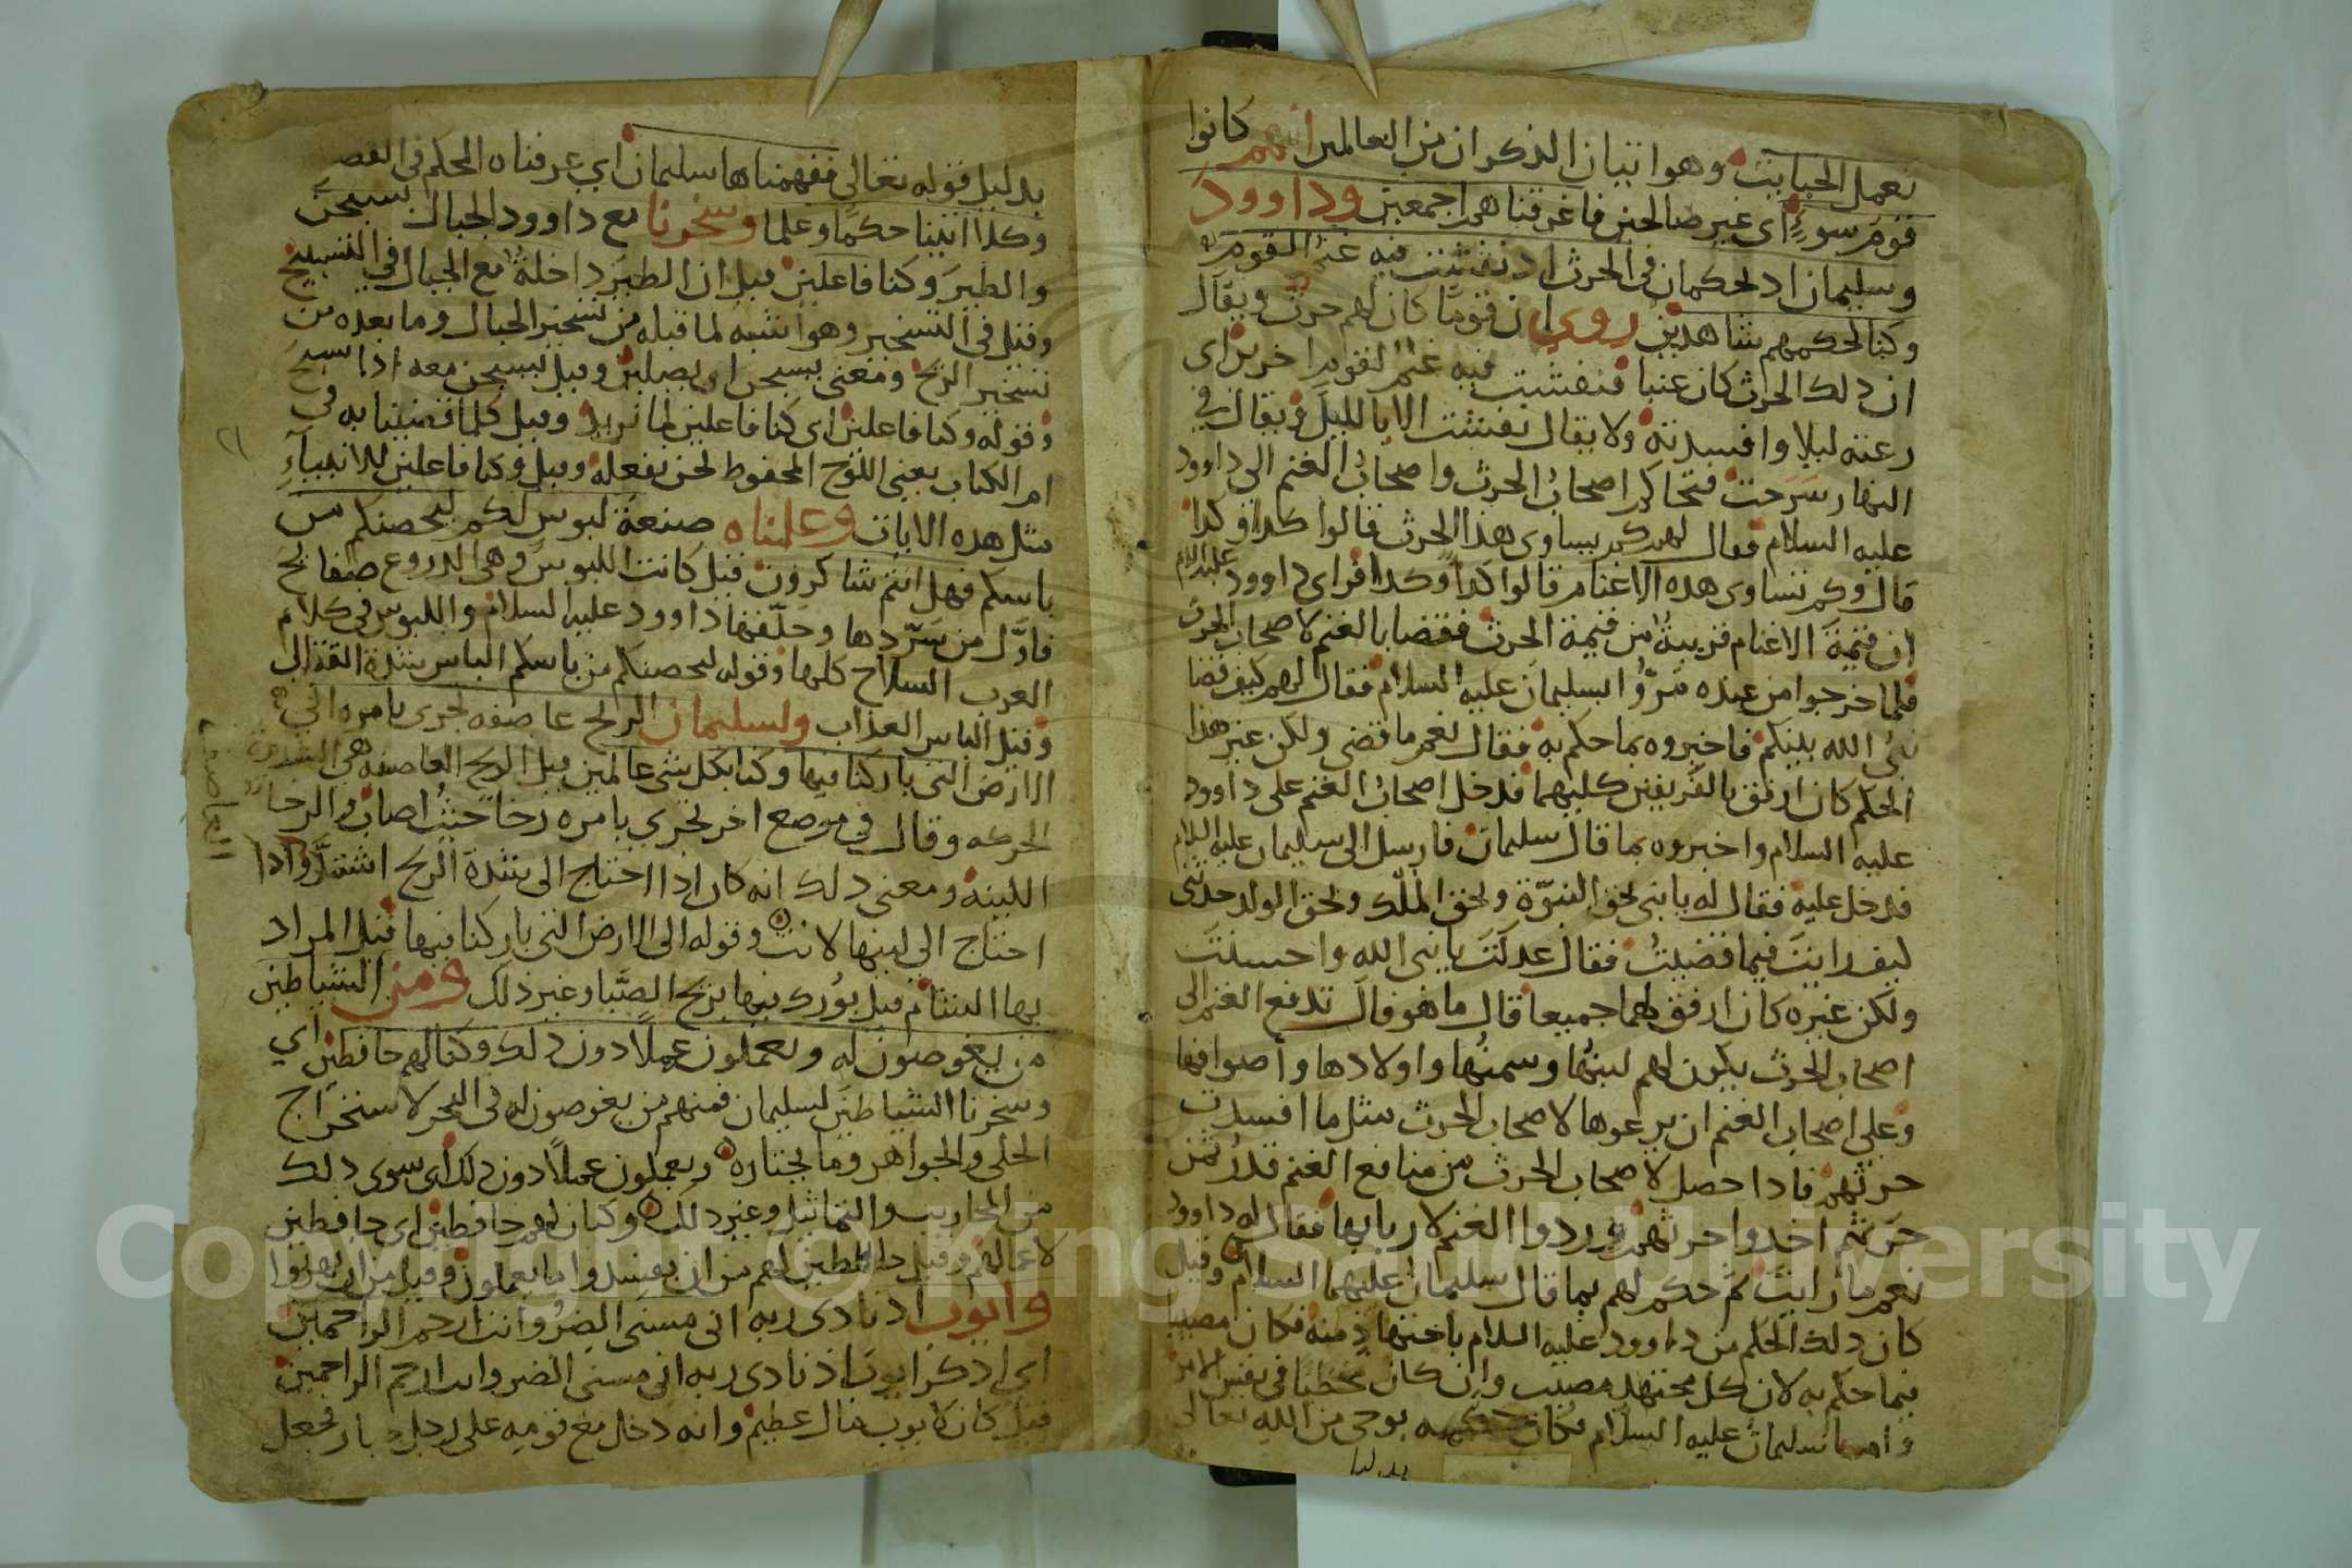 تعمل الخبايث وهو اتيان الذكران من العالمين انهم كانوا
قوم سوءٍ اي غير صالحين فاغرقناهم اجمعين وداوود
وسليمان اد يحكمان في الحرث اد نفشت فيه غنم القوم
وكنا لحكمهم شاهدين روي ان قومًا كان لهم حرث ويقال
ان دلك الحرث كان عنبا فنفشت فيه غنم لقوم اخرين اي
رعته ليلا وافسدته ولا يقال نفشت الا بالليل ويقال في
النهار سرحت فتحاكم اصحاب الحرث واصحاب الغنم الى داوود
عليه السلام فقال لهم كم يساوي هذا الحرث قالوا كدا وكدا
قال وكم تساوي هده الاغنام قالوا كدا وكدا فراى داوود عليه السلام
ان قيمة الاغنام قريبة من قيمة الحرث فقضا بالغنم لاصحاب الحرث
فلما خرجوا من عنده مرّوا بسليمان عليه السلام فقال لهم كيف قضا
نبي الله بينكم فاخبروه بما حكم به فقال نعم ما قضى ولكن غير هذا
الحكم كان ارفق بالفريقين كليهما فدخل اصحاب الغنم على داوود
عليه السلام واخبروه بما قال سليمان فارسل الى سليمان عليه السلام
فدخل عليه فقال له يا بني بحق النبوّة وبحق الملك وبحق الولد حدثني
كيف رايت فيما قضيت فقال عدلت يا نبي الله واحسنت
ولكن غيره كان ارفق بهما جميعا قال ما هو قال تدفع الغنم الى
اصحاب الحرث يكون لهم لبنها وسمنها واولادها واصوافها
وعلى اصحاب الغنم ان يرعوها لاصحاب الحرث مثل ما افسدت
حرثهم فادا حصل لاصحاب الحرث من منافع الغنم قدر ثمن
حرثهم اخدوا حرثهم وردوا الغنم لاربابها فقال له داوود
نعم ما رايت ثم حكم لهم بما قال سليمان عليهما السلام وقيل
كان دلك الحكم من داوود عليه السلام باجتهاد منه فكان مصيبا
فيما حكم به لان كل مجتهد مصيب وان كان مخطيا في نفس الامر
واما سليمان عليه السلام فكان حكمه بوحي من الله تعالى
بدليل
بدليل قوله تعالى ففهمناها سليمان اي عرفناه الحكم في القصه
وكلا اتينا حكمًا وعلما وسخرنا مع داوود الجبال يسبحن
والطير وكنا فاعلين قيل ان الطير داخلة مع الجبال في التسبيح
وقيل في التسخير وهو اشبه لما قبله من تسخير الجبال وما بعده من
تسخير الريح ومعنى يسبحن اي يصلين وقيل يسبحن معه ادا سبح
وقوله وكنا فاعلين اي كنا فاعلين لما نريد وقيل كلما قضينا به في
ام الكتاب يعني اللوح المحفوظ نحن نفعله وقيل وكنا فاعلين للانبياء
مثل هده الايات وعلمناه صنعة لبوس لكم ليحصنكم من
باسكم فهل انتم شاكرون قيل كانت اللبوس وهي الدروع صفايح
فاوّل من سرّدها وحلّقها داوود عليه السلام واللبوس في كلام
العرب السلاح كلها وقوله ليحصنكم من باسكم الباس شدة القتال
وقيل الباس العذاب ولسليمان الريح عاصفه تجري بامره الى
الارض التي باركنا فيها وكنا بكل شي عالمين قيل الريح العاصفه هي الشديدة
الحركه وقال في موضع اخر تجري بامره رخا حيث اصاب والرخا
اللينة ومعنى دلك انه كان ادا احتاج الى شدة الريح اشتدّ وادا
احتاج الى لينها لانت وقوله الى الارض التي باركنا فيها قيل المراد
بها الشام قيل بورك فيها بريح الصّبا وغير ذلك ومن الشياطين
من يغوصون له ويعملون عملا دون دلك وكنا لهم حافظين اي
وسخرنا الشياطين لسليمان فمنهم من يغوصون له في البحر لاستخراج
الحلي والجواهر وما يختاره ويعملون عملاً دون دلك اي سوى دلك
من المحاريب والتماثيل وغير دلك وكنا لهم حافظين اي حافظين
لاعمالهم وقيل حافظين لهم من ان يفسدوا ما يعملون وقيل من ان يهربوا
وايوب اد نادى ربه اني مسني الضر وانت ارحم الراحمين
اي ادكر ايوب اذ نادى ربه اني مسني الضر وانت ارحم الراحمين
قيل كان لايوب مال عظيم وانه دخل مع قومه على رجل جبار فجعل
Copyright © King Saud University